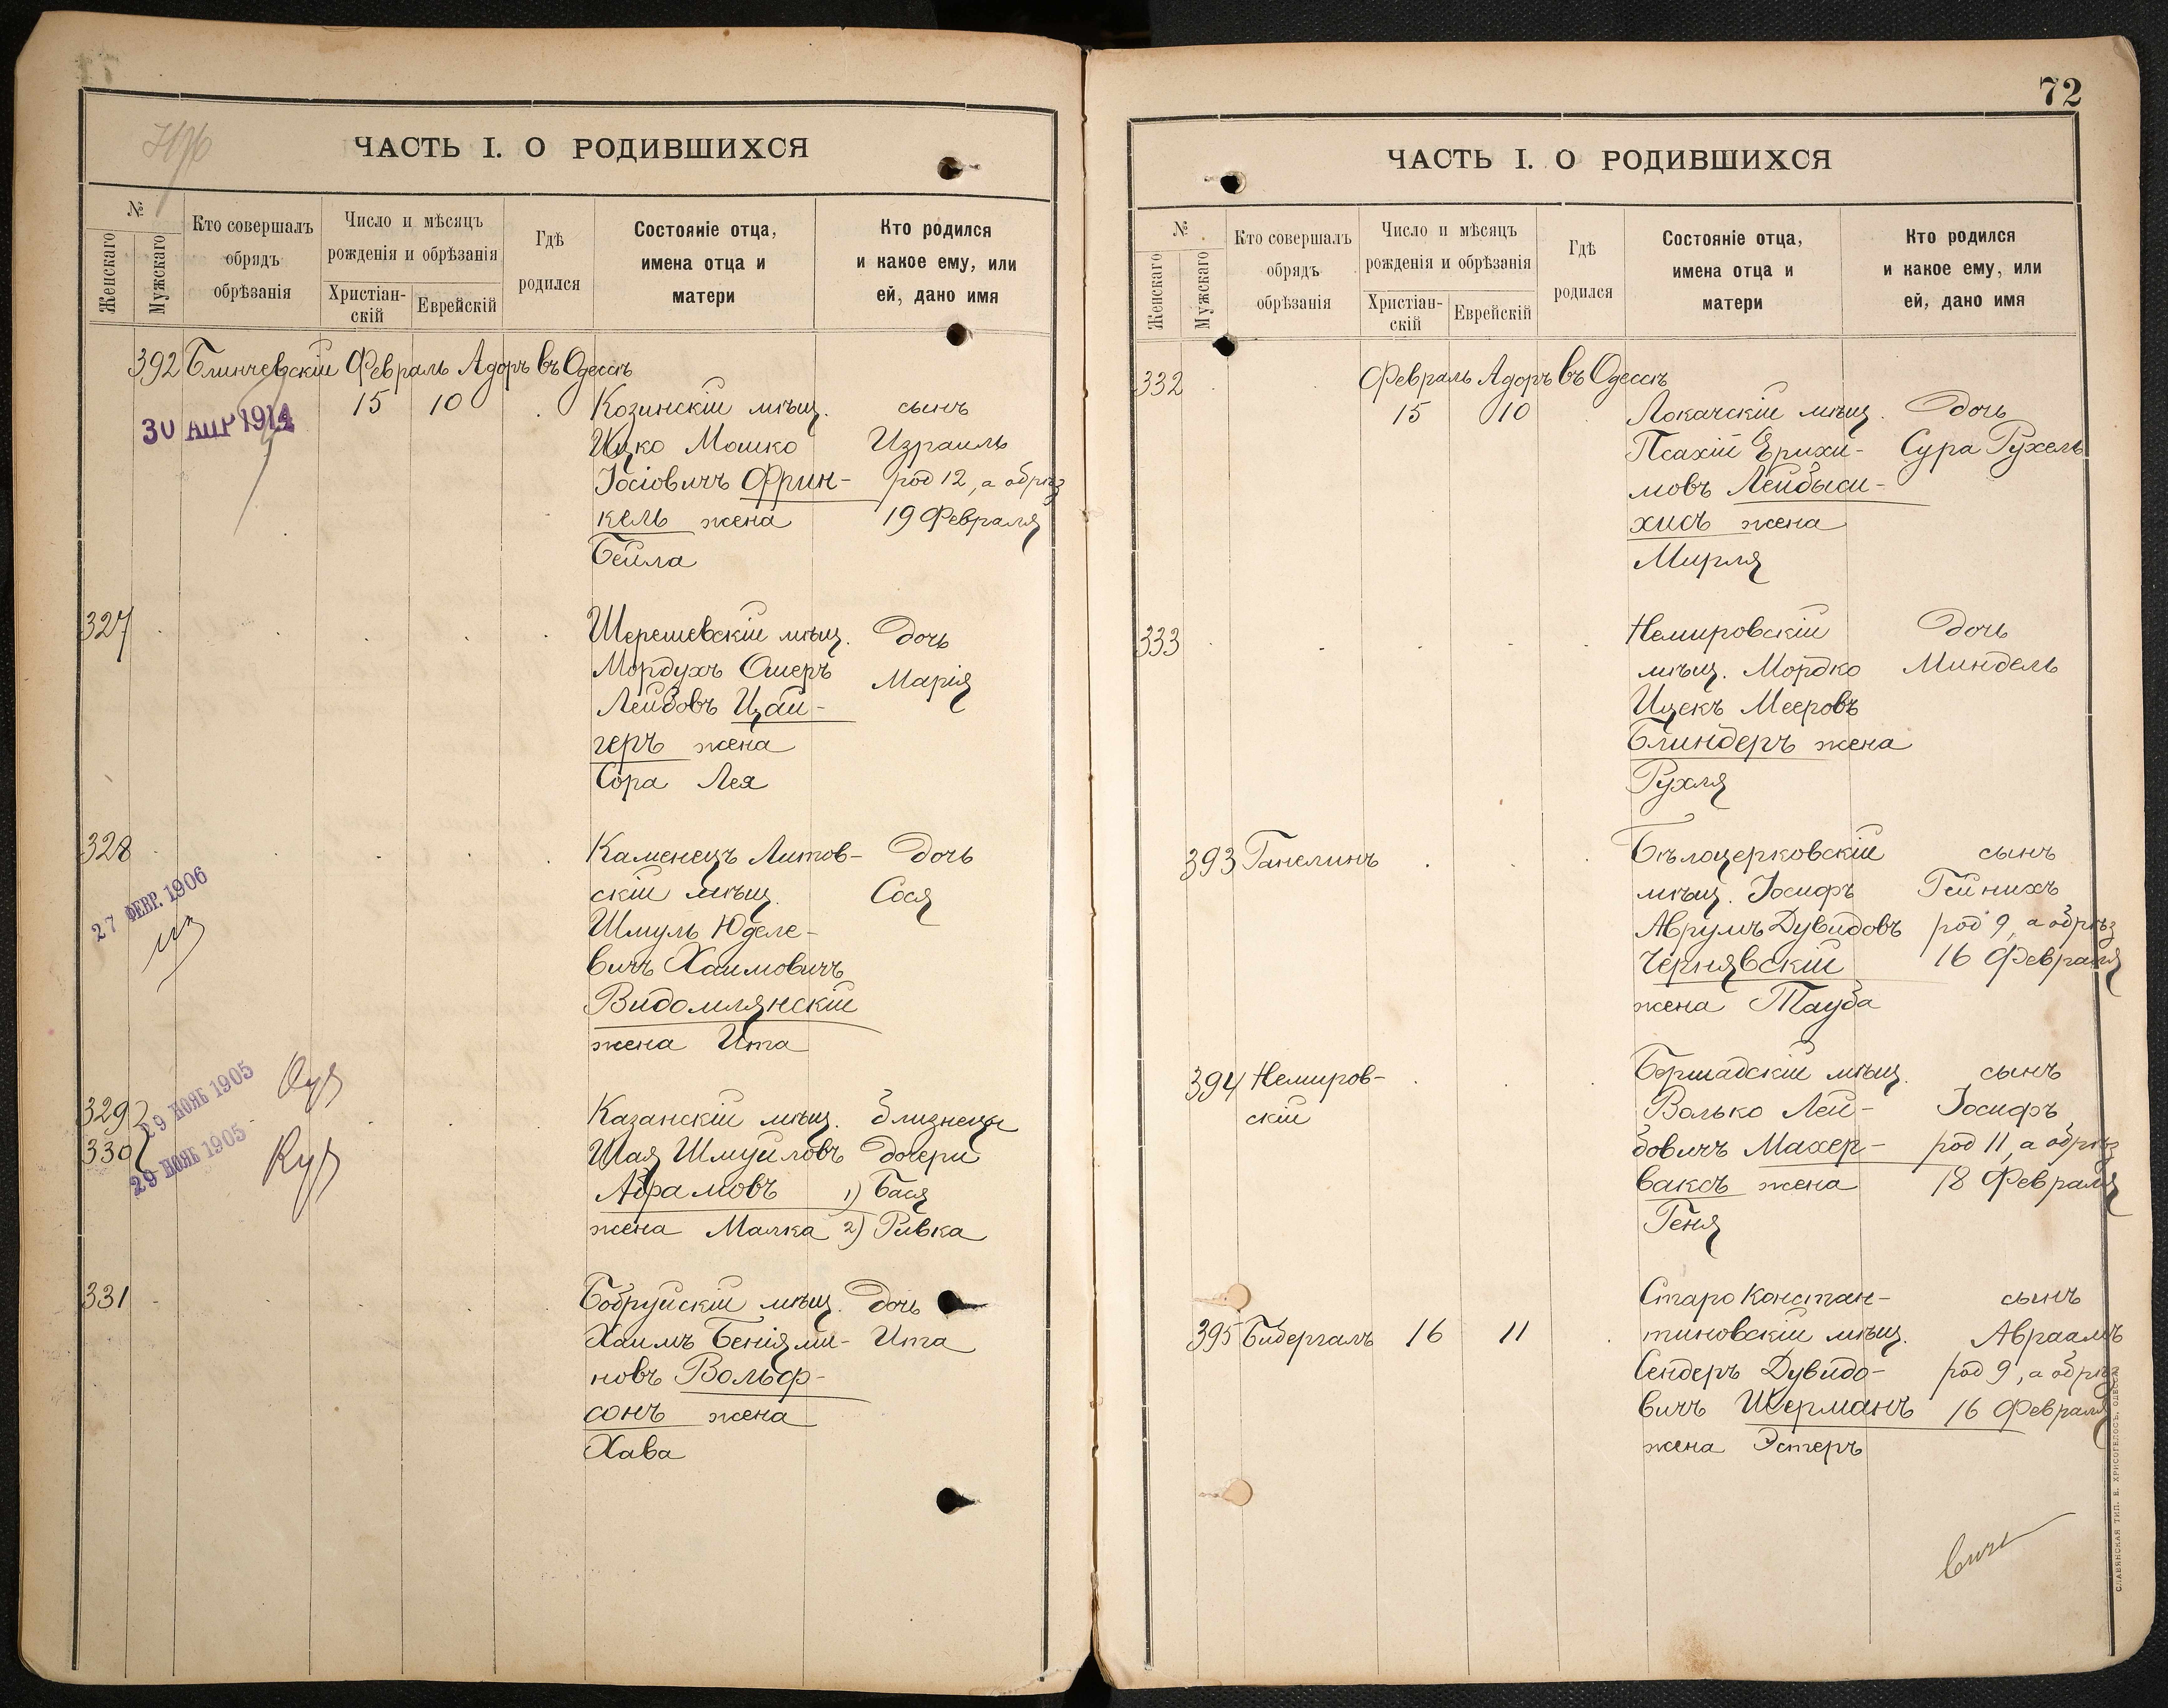 ЧАСТЬ I. О РОДИВШИХСЯ
№
Женскаго
Мужскаго
Кто совершалъ
обрядъ
обрѣзанія
Число и мѣсяцъ
рожденія и обрѣзанія
Христіан-
скій
Еврейскій
Гдѣ
родился
Состояніе отца,
имена отца и
матери
Кто родился
и какое ему, или
ей, дано имя
392 Блинчевскій Февраль Адоръ въ Одессѣ
30 АПР 1914
15 10 Козинскій мѣщ. сынъ
Ицко Мошко Израиль
Іосіовичъ Фрин- род 12, а обрѣз
кель жена 19 Февраля
Бейла
327 Шерешевскій мѣщ. дочь
Мордухъ Ошеръ Марія
Лейбовъ Цай-
геръ жена
Сора Лея
328 Каменецъ Литов- дочь
скій мѣщ. Сося
27 ФЕВР. 1906
Шмуль Юделе-
вичъ Хаимовичъ
Видомлянскій
жена Ита
329 29 НОЯБ 1905 Казанскій мѣщ. близнецы
330 29 НОЯБ 1905 Шая Шмуйловъ дочери
Абрамовъ 1) Бася
жена Малка 2) Ривка
331 Бобруйскій мѣщ. дочь
Хаимъ Беніями- Ита
новъ Вольф-
сонъ жена
Хава
72
ЧАСТЬ I. О РОДИВШИХСЯ
№
Женскаго
Мужскаго
Кто совершалъ
обрядъ
обрѣзанія
Число и мѣсяцъ
рожденія и обрѣзанія
Христіан-
скій
Еврейскій
Гдѣ
родился
Состояніе отца,
имена отца и
матери
Кто родился
и какое ему, или
ей, дано имя
332 Февраль Адоръ въ Одессѣ
15 10 Локачскій мѣщ. дочь
Псахій Ерихи- Сура Рухель
мовъ Лейбыси-
хисъ жена
Мирля
333 Немировскій дочь
мѣщ. Мордко Миндель
Ицекъ Мееровъ
Блиндеръ жена
Рухля
393 Ганелинъ Бѣлоцерковскій сынъ
мѣщ. Іосифъ Гейнихъ
Аврумъ Дувидовъ род 9, а обрѣз
Чернявскій 16 Февраля
жена Тауба
394 Немиров- Бершадскій мѣщ. сынъ
скій Волько Лей- Іосифъ
бовичъ Махер- род 11, а обрѣз
ваксъ жена 18 Февраля
Геня
Старо Констан- сынъ
395 Бидергалъ 16 11 тиновскій мѣщ. Авраамъ
Сендеръ Дувидо- род 9, а обрѣз
вичъ Шерманъ 16 Февраля
жена Эстеръ
СЛАВЯНСКАЯ ТИП. Е. ХРИСОГЕЛОСЪ, ОДЕССА